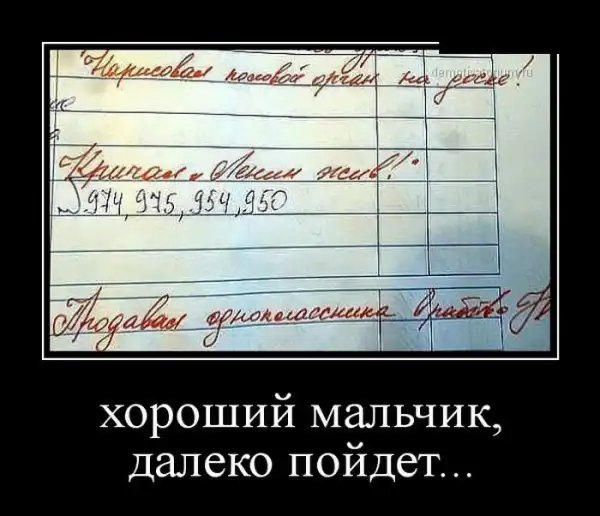 Нарисовал половой орган на доске!
demotivatorium.ru
Кричал "Ленин жив!"
№ 974, 975, 954, 950
Продавал одноклассника в рабство
хороший мальчик,
далеко пойдет...